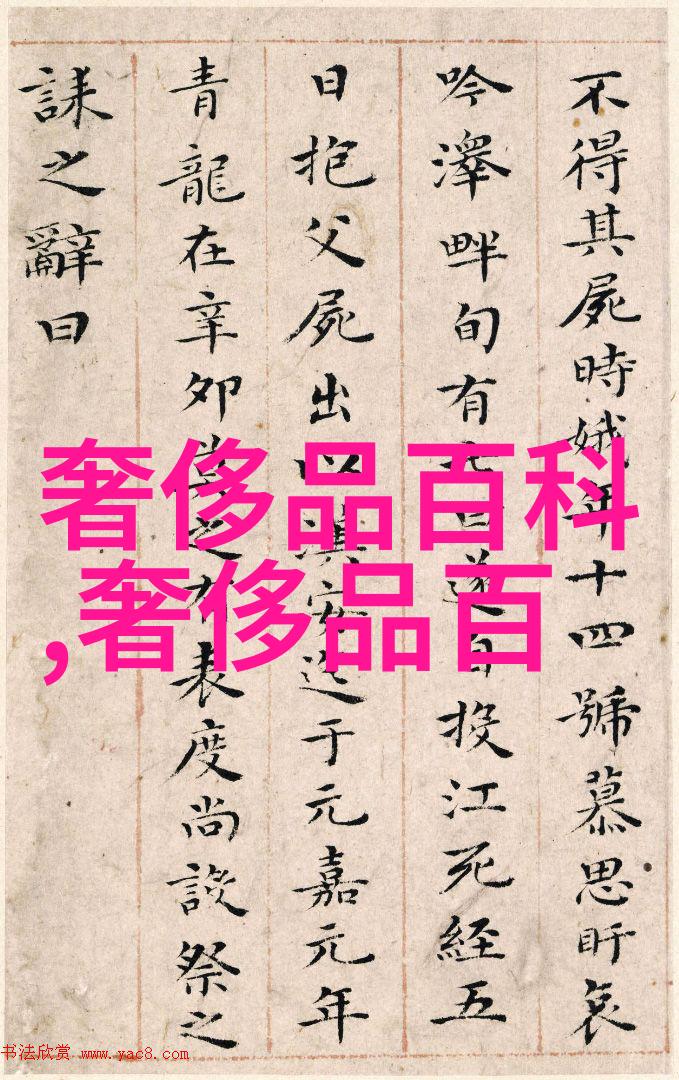 不得其屍時娥年十四號慕思盱哀
吟澤畔旬有七日遂自投江死經五
日抱父屍出以漢安迄于元嘉元年
青龍在辛卯之有表度尚設祭之
誄之辭曰
奢侈品百科
,奢侈品百
书法欣赏 www.yac8.com